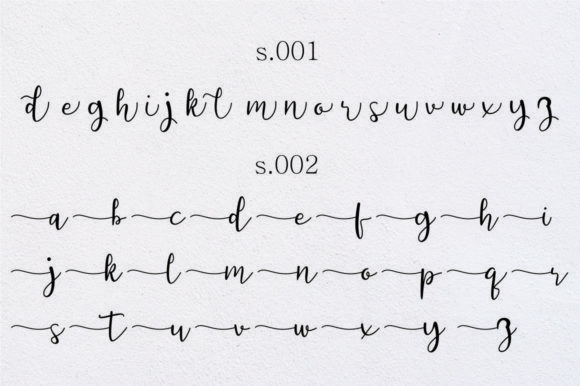 s.001
d e g h i j k l m n o r s u v w x y z
s.002
a b c d e f g h i
j k l m n o p q r
s t u v w x y z